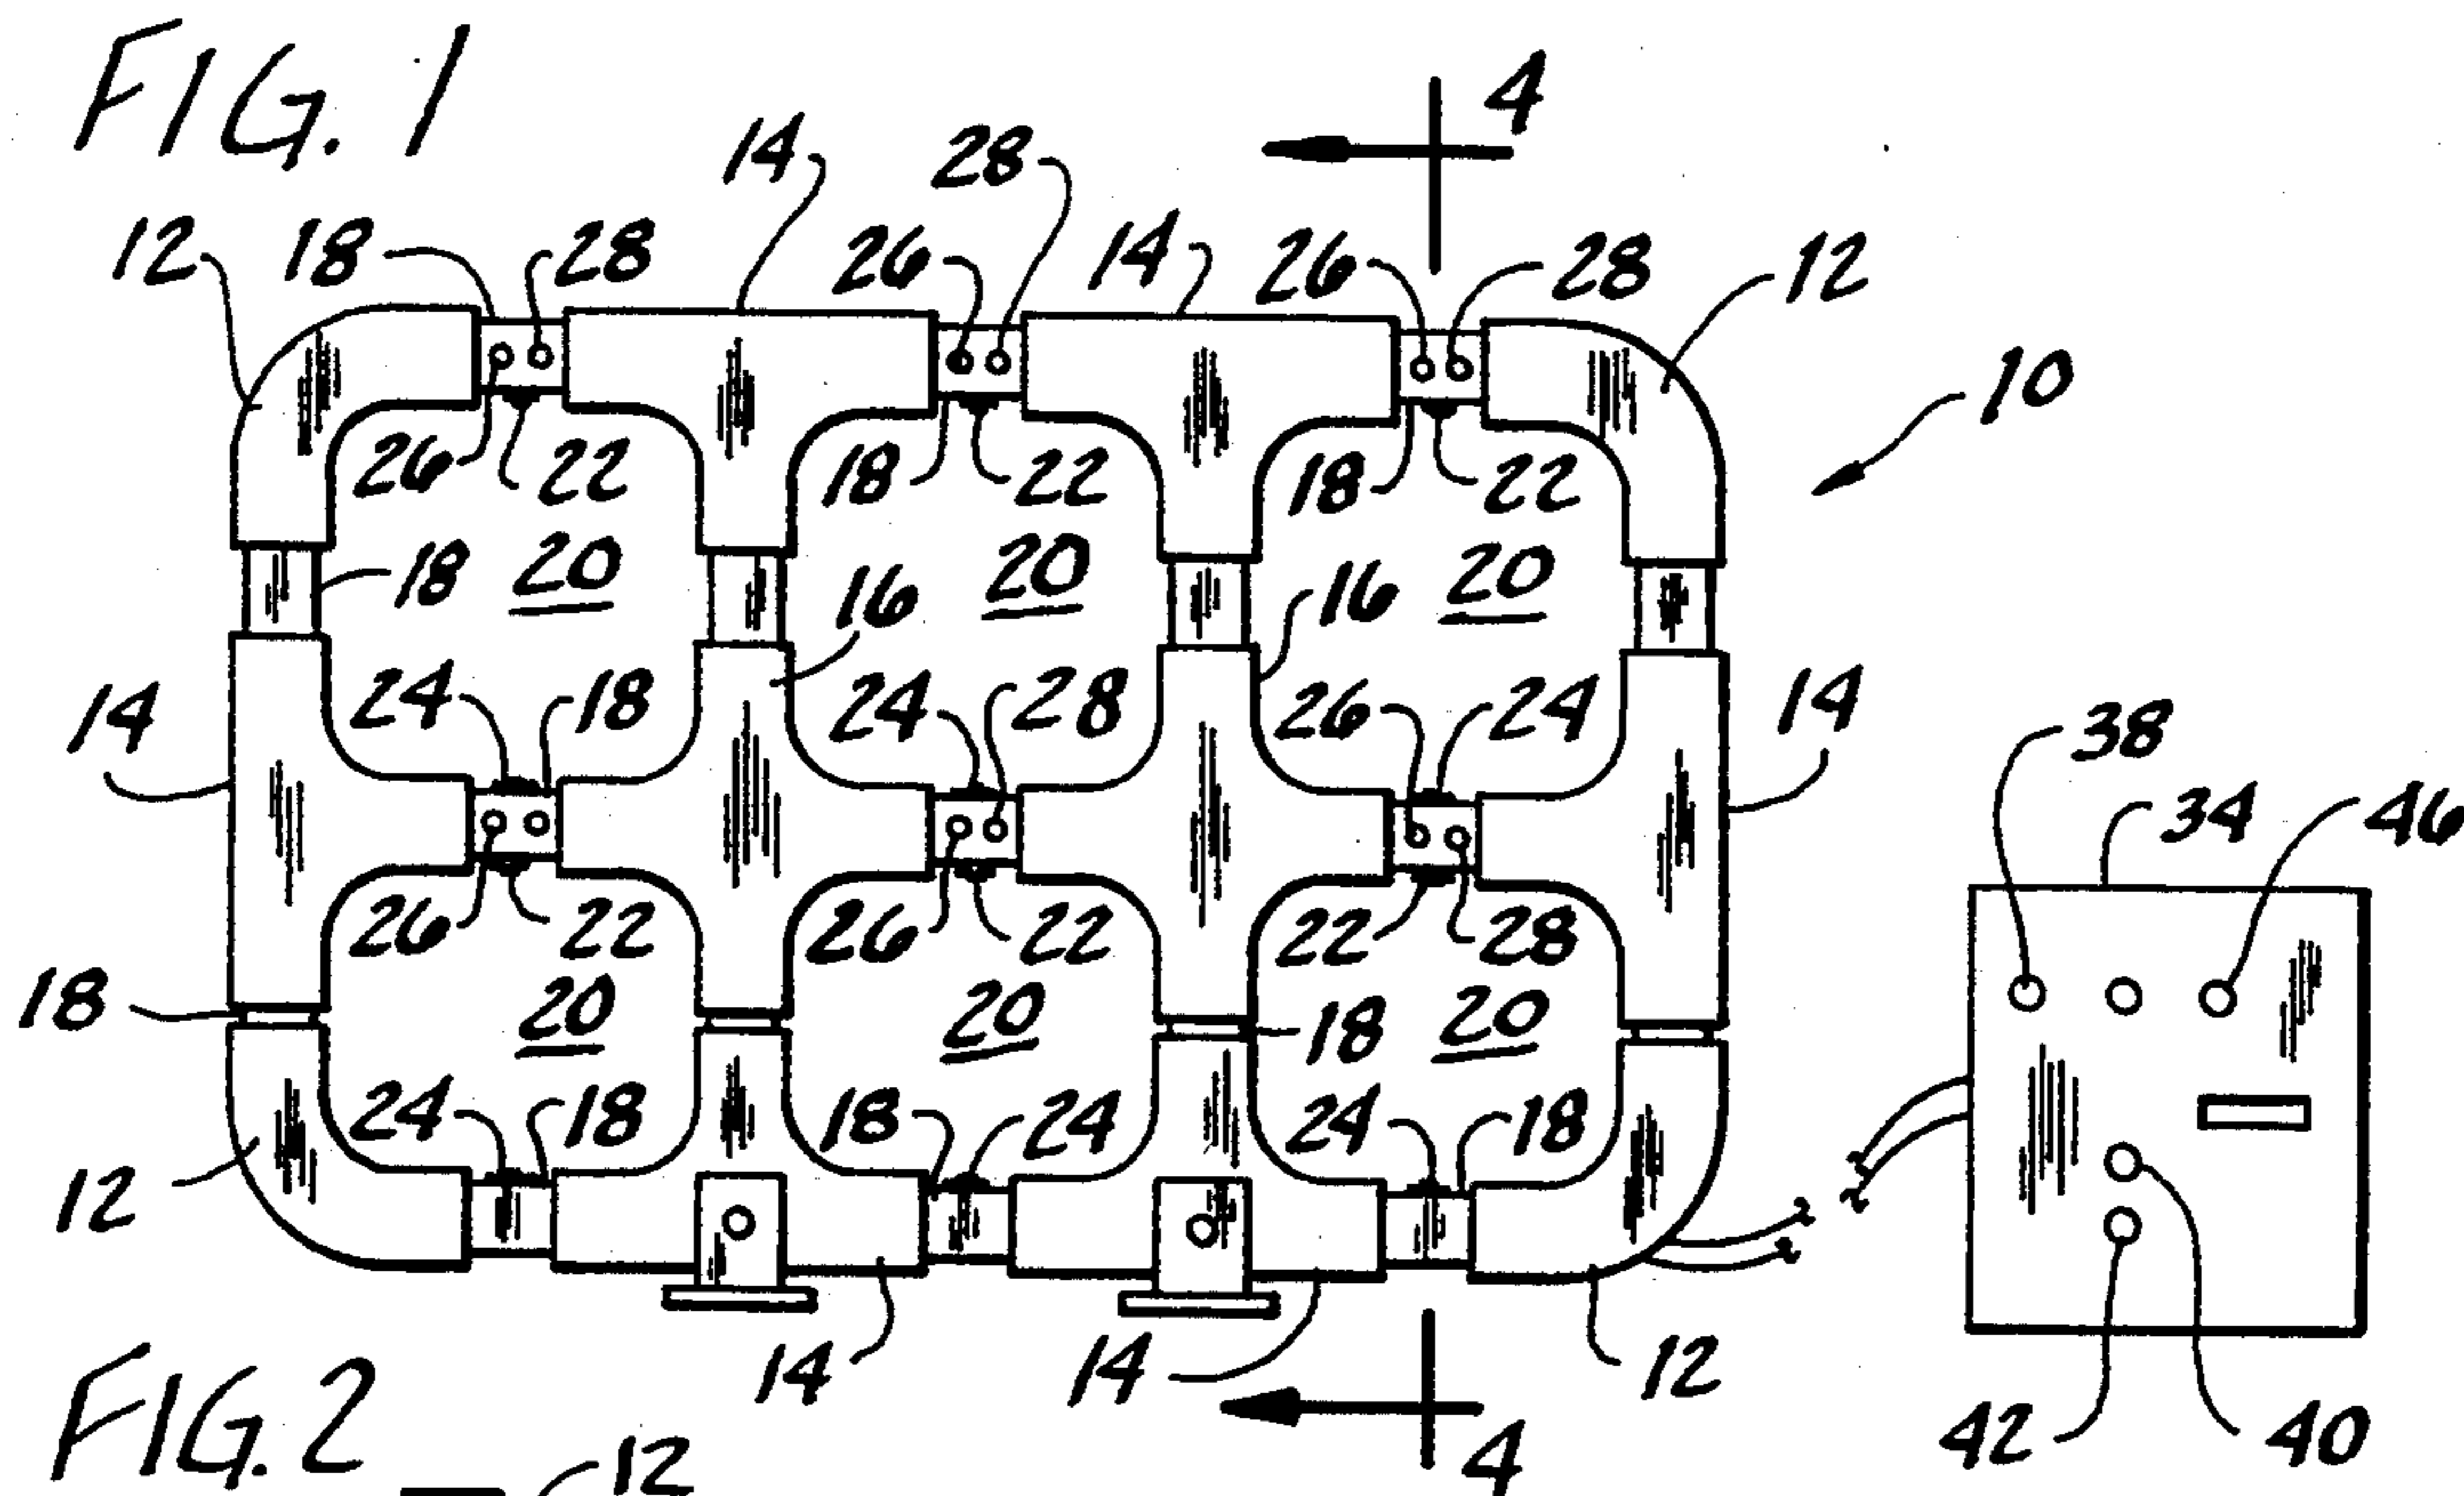 FIG. 1
4
14 28
12 18 28 26 14 26 28 12
10
26 22 18 22 18 22
18 20 20 20
16 16
14 24 18 24 28 26 24 14
38
34 46
26 22 26 22 22 28
18 20 20 18 20
24 18 18 24 24 18
12
14 14 12
42 40
FIG. 2
12 4